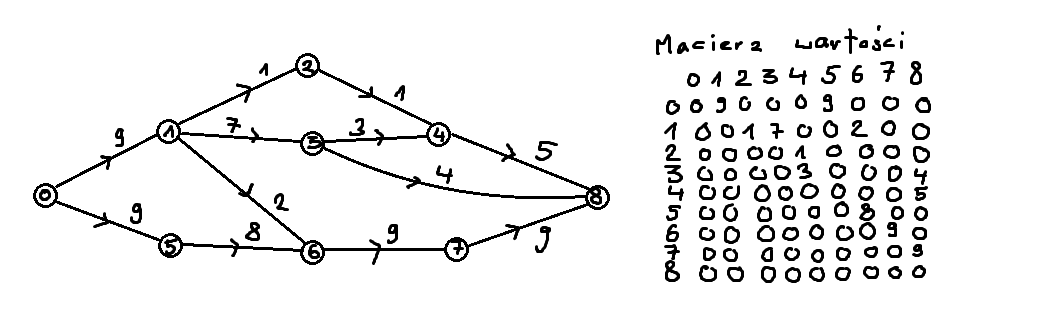 2
1
1
9
1
7
3
3
4
5
4
2
0
8
9
5
8
6
9
7
9
Macierz wartości
0 1 2 3 4 5 6 7 8
0 0 9 0 0 0 9 0 0 0
1 0 0 1 7 0 0 2 0 0
2 0 0 0 0 1 0 0 0 0
3 0 0 0 0 3 0 0 0 4
4 0 0 0 0 0 0 0 0 5
5 0 0 0 0 0 0 8 0 0
6 0 0 0 0 0 0 0 9 0
7 0 0 0 0 0 0 0 0 9
8 0 0 0 0 0 0 0 0 0